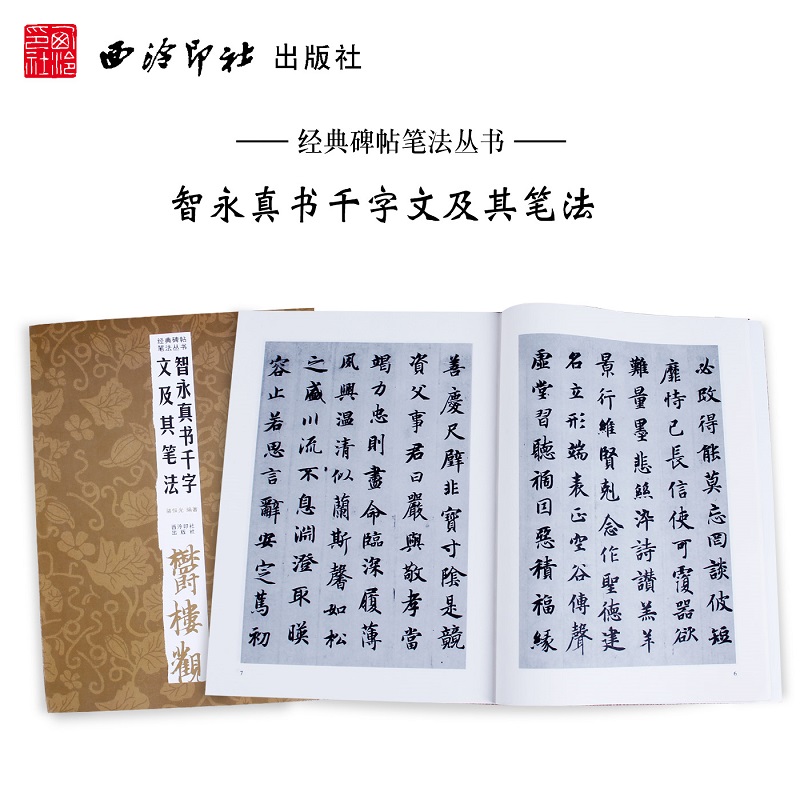 西泠印社
西泠印社 出版社
经典碑帖笔法丛书
智永真书千字文及其笔法
经典碑帖
笔法丛书
智永真书千字
文及其笔法
编著
西泠印社
出版社
鬱樓觀
必改得能莫忘罔談彼短
靡恃己長信使可覆器欲
難量墨悲絲淬詩讃羔羊
景行維賢剋念作聖德建
名立形端表正空谷傳聲
虛堂習聽禍因惡積福緣
6
善慶尺璧非寶寸陰是競
資父事君曰嚴與敬孝當
竭力忠則盡命臨深履薄
夙興温清似蘭斯馨如松
之盛川流不息淵澄取暎
容止若思言辭安定篤初
7